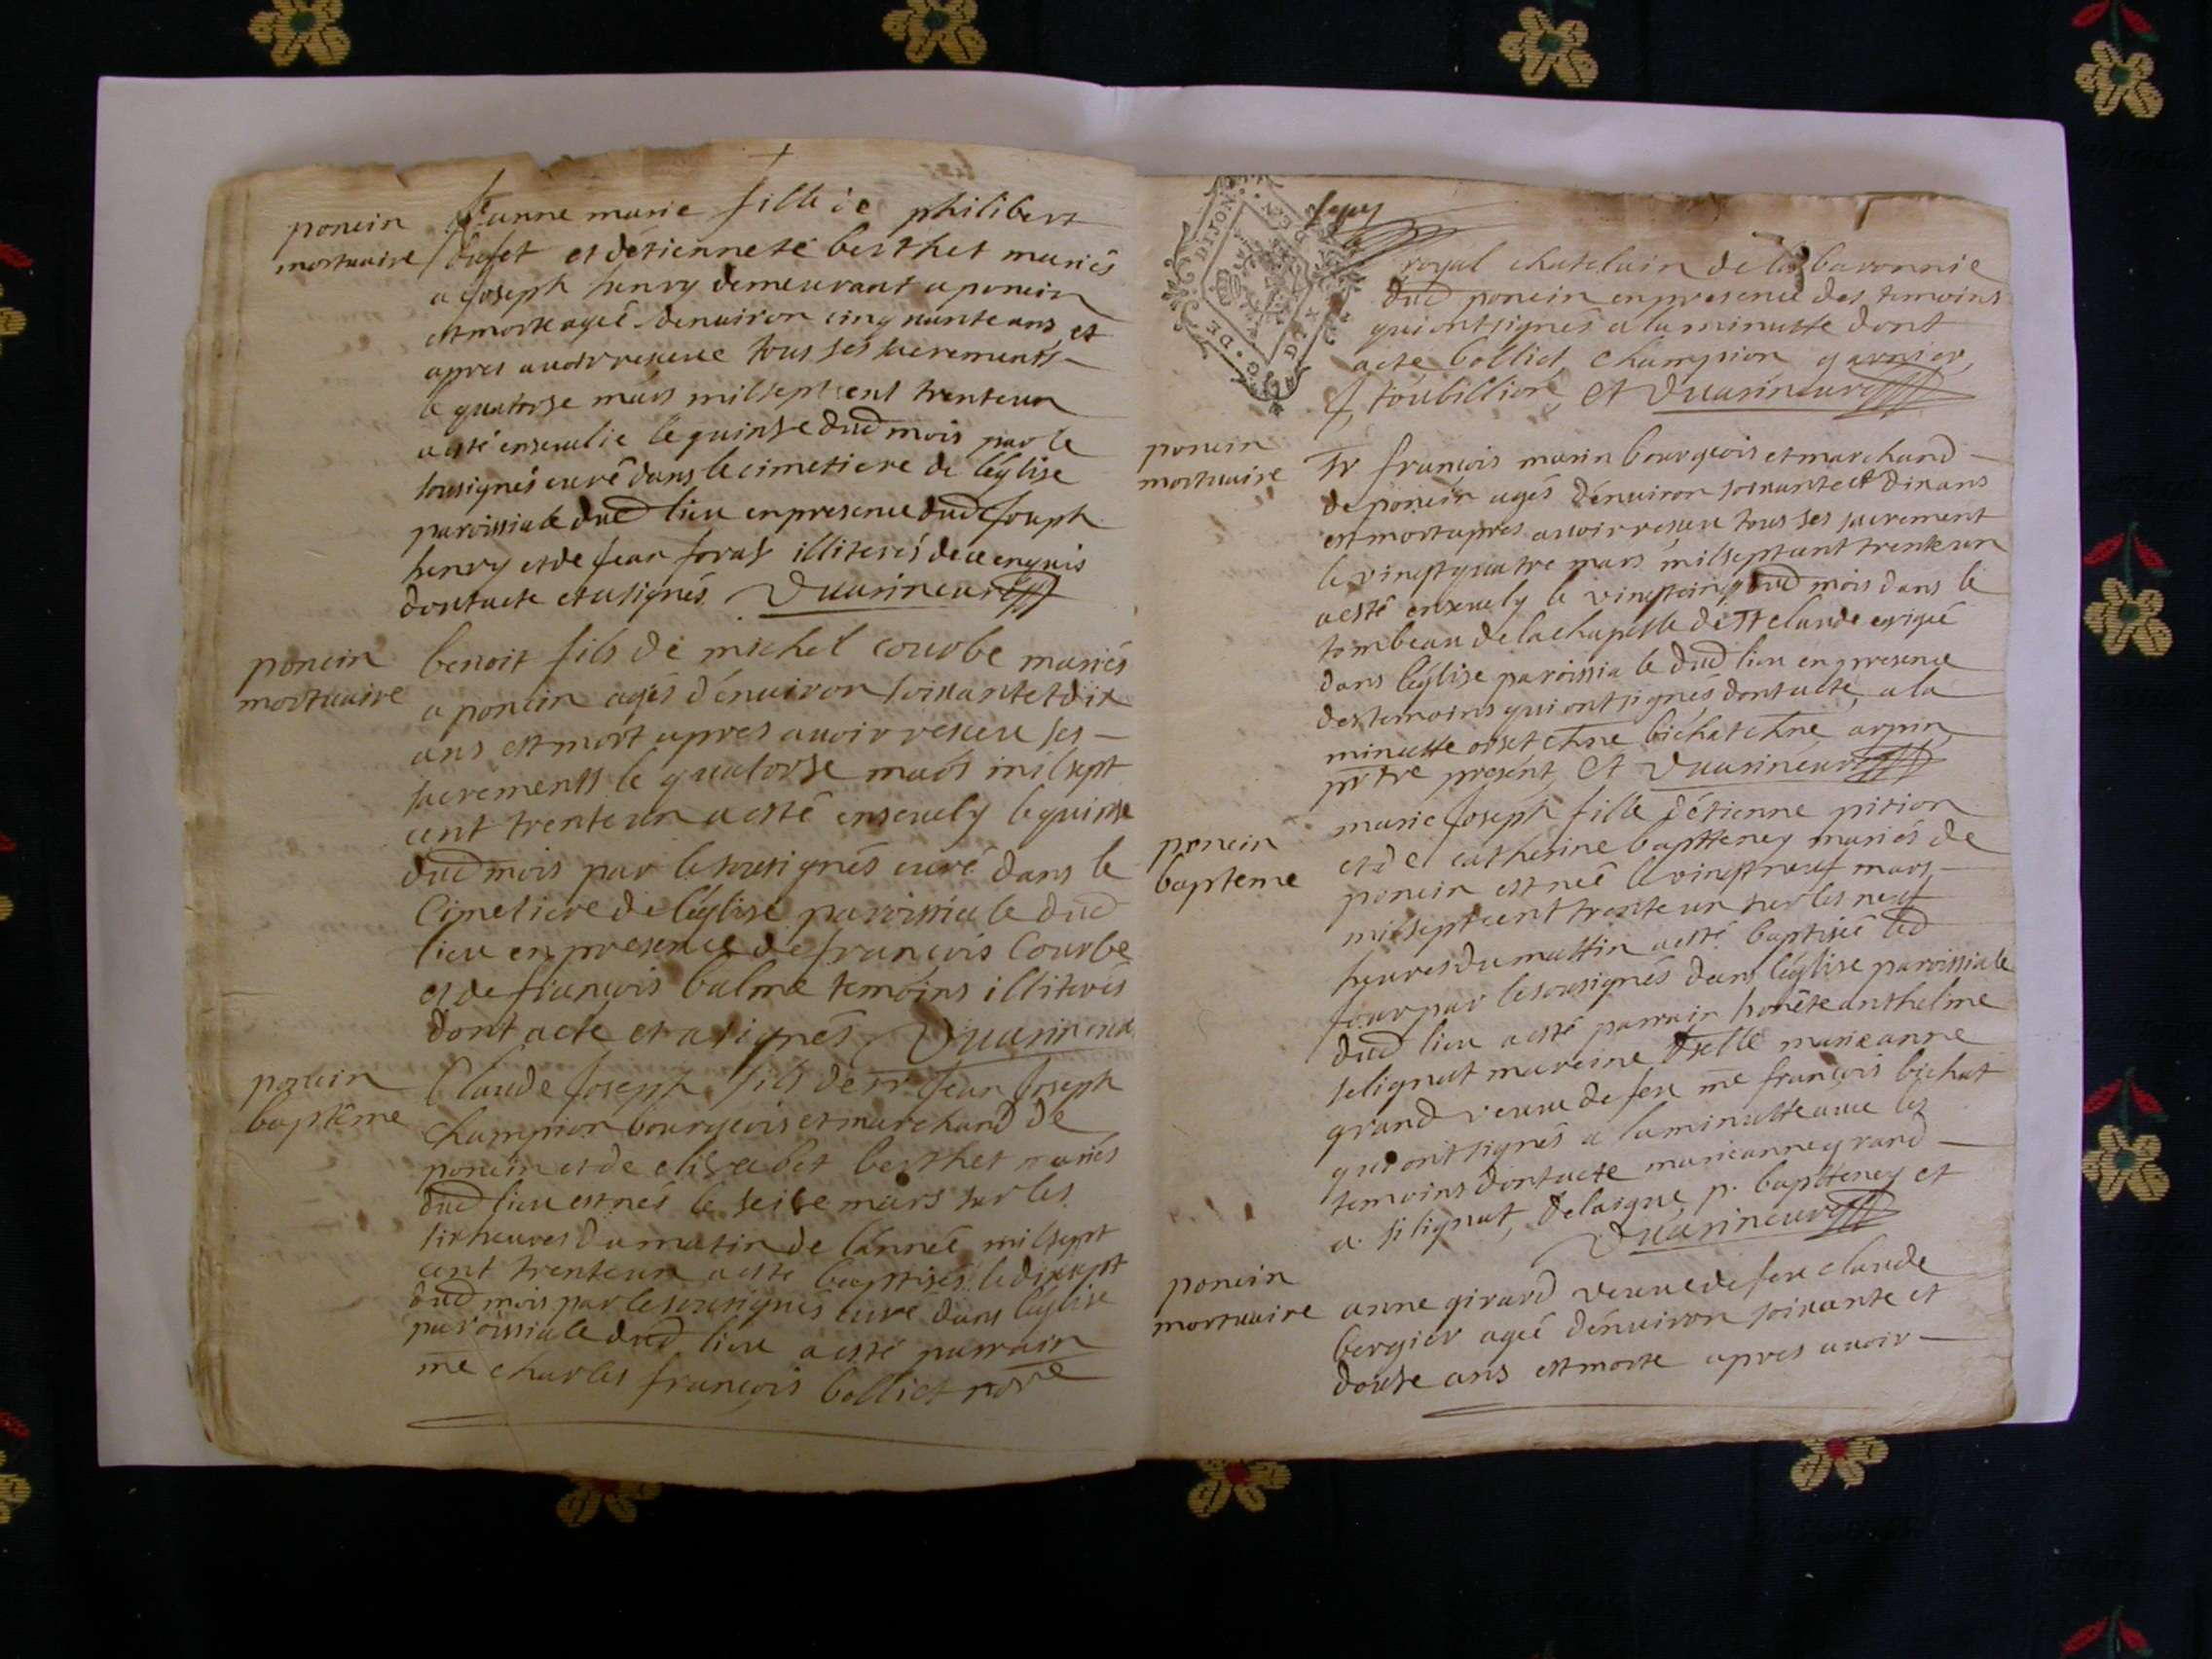 poncin
mortuaire
Jeanne marie fille de philibert
et détiennete berthet mariés
a Joseph henry demeurant a poncin
est morte ageé denuiron cinquante ans et
apres auoir receue tous ses sacrements
le quatorse mars mil sept cent trente un
a esté enseuelie le quinse dud mois par le
sousignés curé dans le cimetiere de léglise
paroissiale dud lieu en presence dud Joseph
henry et de Jean illiterés de ce enquis
dont acte et a signés Vuarin curé
poncin
mortuaire
benoit fils de michel courbe mariés
a poncin agés dénuiron soixante et dix
ans est mort apres auoir receu ses
sacrements le quatorse mars mil sept
cent trente un a esté enseuely le quinse
dud mois par le sousignés curé dans le
Cimetiere de léglise paroissiale dud
lieu en presence de françois Courbe
et de françois balme temoins illiterés
dont acte et a signés Vuarin curé
poncin
baptême
Claude Joseph fils de sr Jean Joseph
champion bourgeois et marchand de
poncin et de elisabet berthet mariés
dud lieu est nés le seise mars sur les
six heures du matin de lánnée mil sept
cent trente un a esté baptisés le dixsept
dud mois par le sousignés curé dans léglise
paroissiale dud lieu a esté parrain
me charles françois bolliet nore
DIJON
royal chatelain de la baronnie
dud poncin en presence des temoins
qui ont signés a la minutte dont
acte bolliet, champion garnier,
toubillion, et Vuarin curé
poncin
mortuaire
sr françois marin bourgeois et marchand
de poncin agés dénuiron soixante et dix ans
est mort apres auoir receu tous ses sacrement
le vingt quatre mars mil sept cent trente un
a esté enseuely le vingt cinq dud mois dans le
tombeau de la chapelle de St claude erigée
dans léglise paroissiale dud lieu en presence
des temoins qui ont signés dont acte, a la
minutte orset chne bichat chne arpin
prtre present et Vuarin curé
poncin
bapteme
marie Joseph fille détienne pition
et de catherine baptteney mariés de
poncin est née le vingt neuf mars
mil sept cent trente un sur les neuf
heures du mattin a esté baptisée led
Jour par le sousignés dans léglise paroissiale
dud lieu a esté parrain honête anthelme
selignat mareine dselle marie anne
grand veuue de feu me françois bichat
qui ont signés a la minutte auec les
temoins dont acte marie anne grand
a. silignat, delaigue p. baptteney et
Vuarin curé
poncin
mortuaire
anne girard veuue de feu claude
bergier ageé dénuiron soixante et
douse ans est morte apres auoir